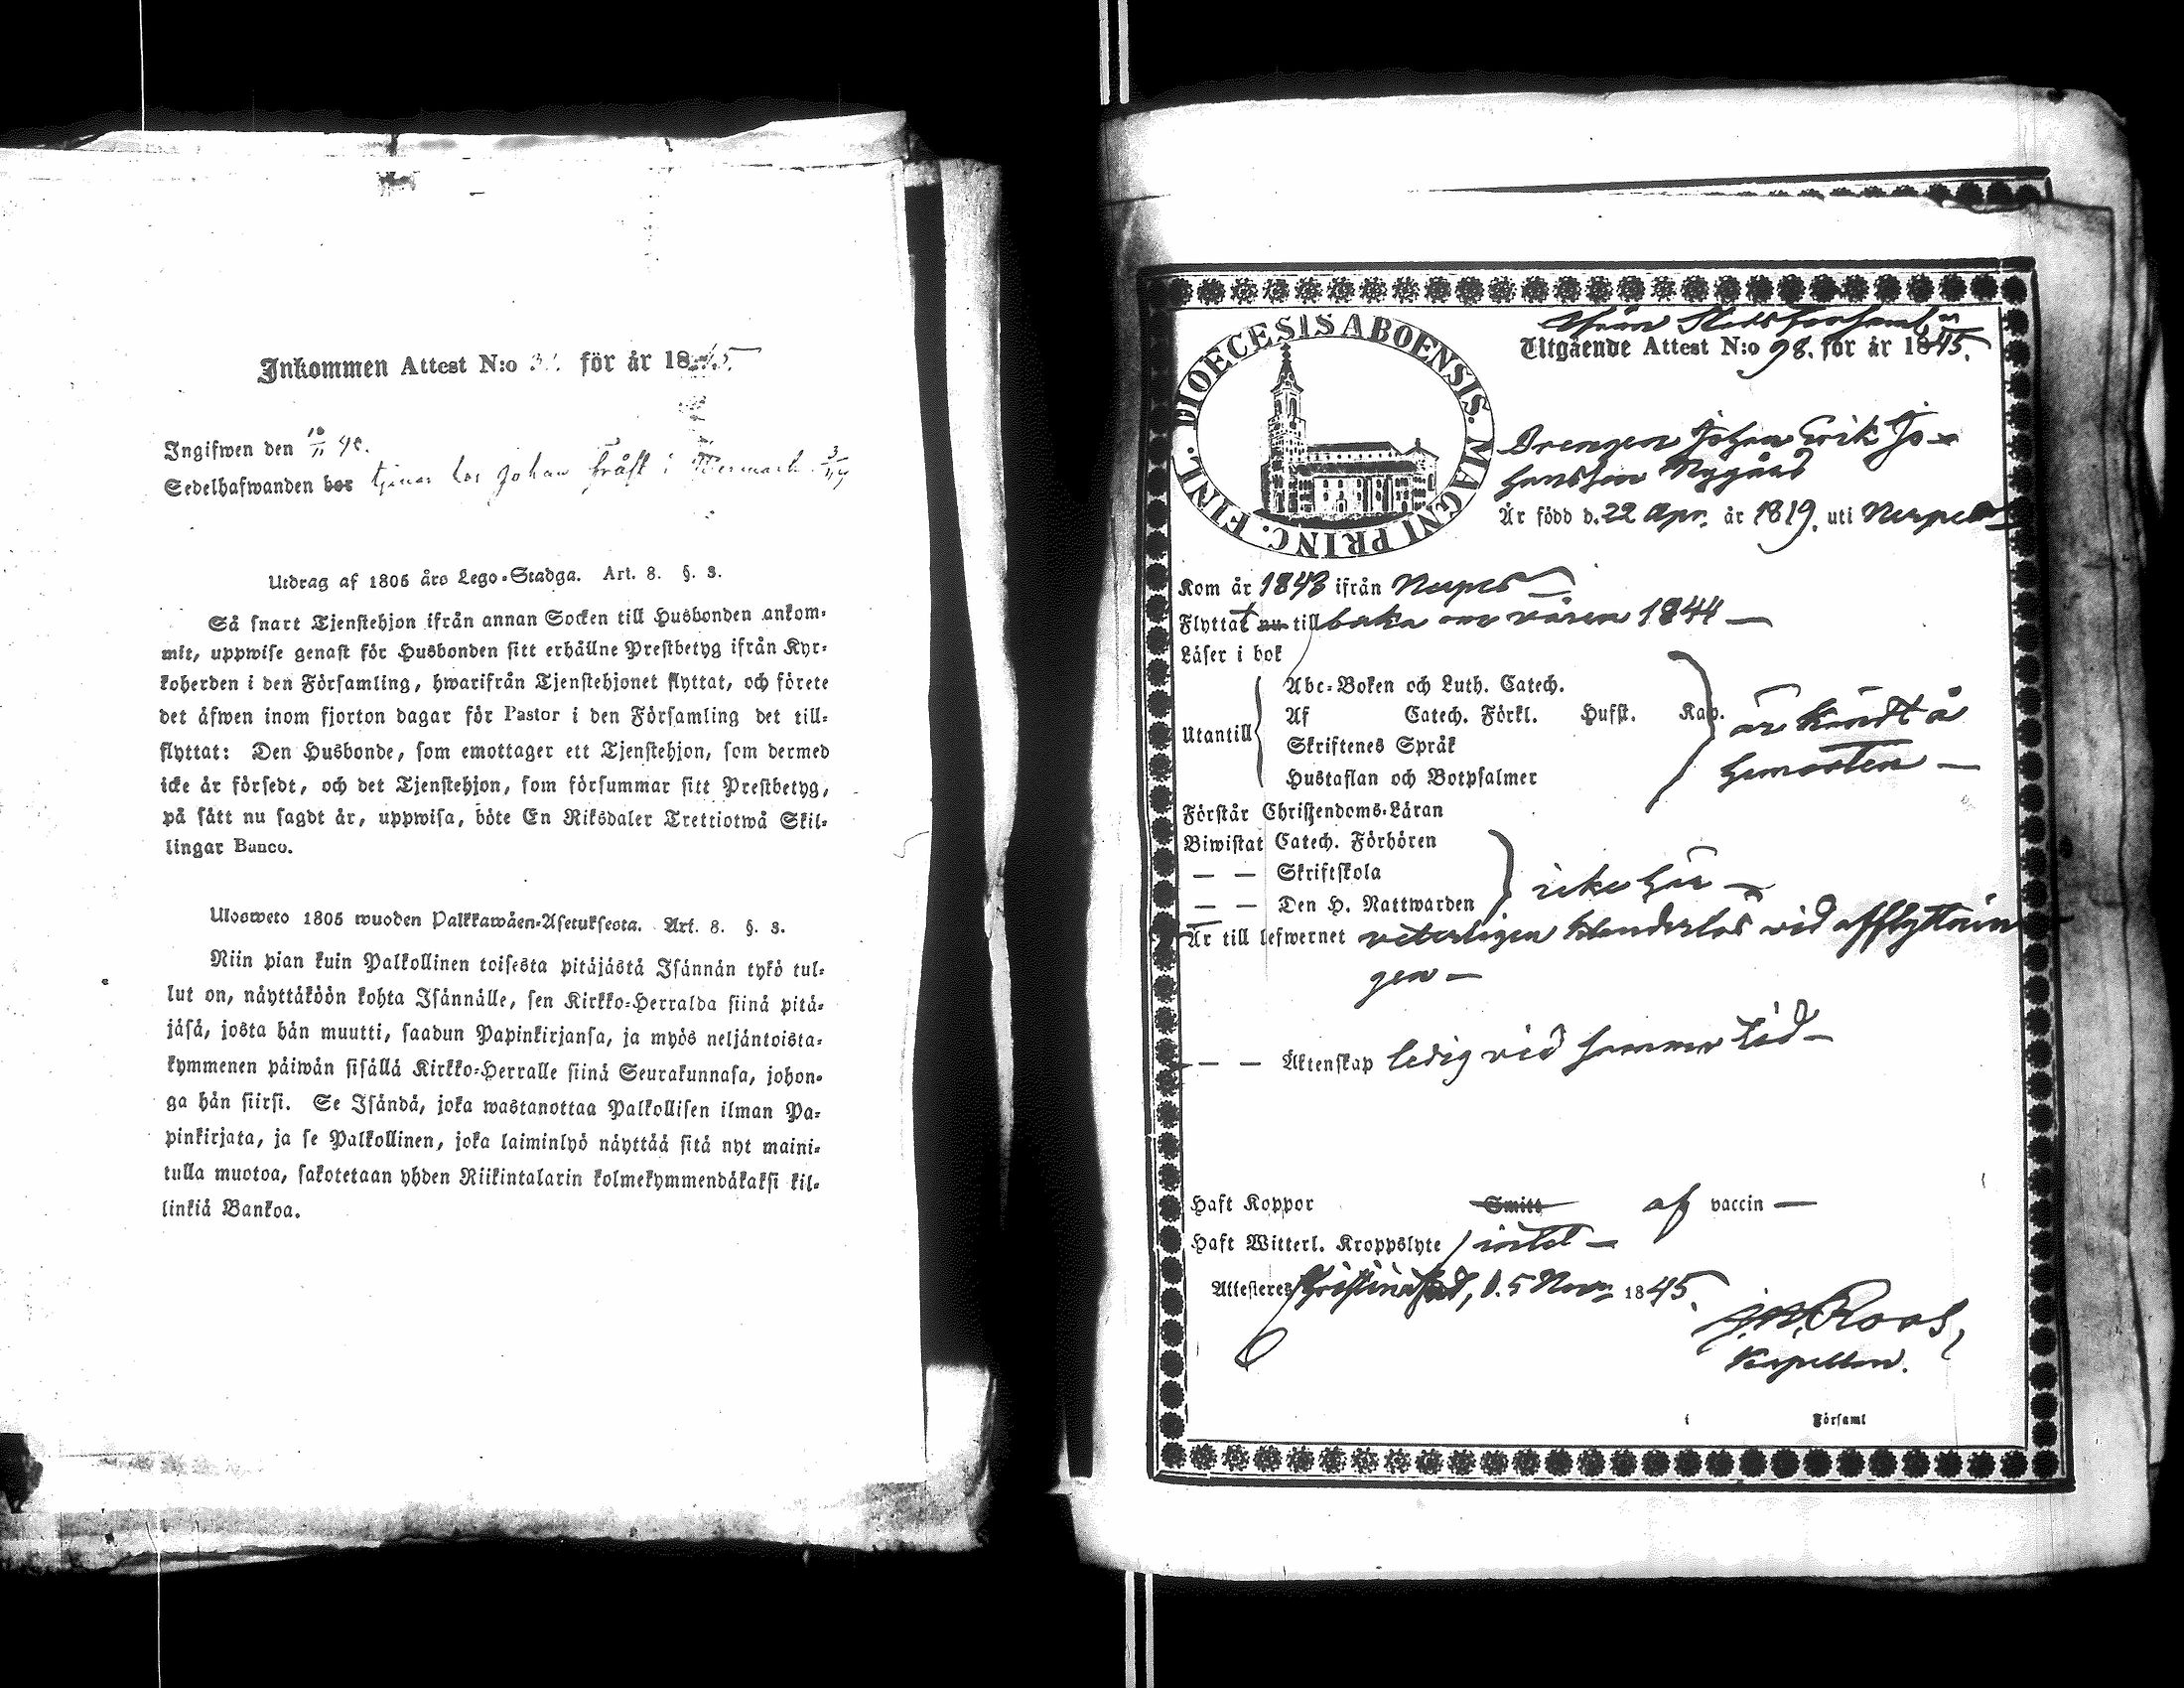 Inkommen Attest N:o för år 1845
Ingifwen den
Sedelhafwanden bor tjenar hos Johan i
Utdrag af 1805 års Lego-Stadga. Art. 8. §. 3.
Så snart Tjenstehjon ifrån annan Socken till Husbonden ankom-
mit, uppwise genast för Husbonden sitt erhållne Prestbetyg ifrån Kyr-
koherden i den Församling, hwarifrån Tjenstehjonet flyttat, och förete
det äfwen inom fjorton dagar för Pastor i den Församling det till-
flyttat: Den Husbonde, som emottager ett Tjenstehjon, som dermed
icke är försedt, och det Tjenstehjon, som försummar sitt Prestbetyg,
på sätt nu sagdt är, uppwisa, böte En Riksdaler Trettiotwå Skil-
lingar Banco.
Ulosweto 1805 wuoden Palkkawäen-Asetuksesta. Art. 8. §. 3.
Niin pian kuin Palkollinen toisesta pitäjästä Isännän tykö tul-
lut on, näyttäköön kohta Isännälle, sen Kirkko-Herralda siinä pitä-
jäsä, josta hän muutti, saadun Papinkirjansa, ja myös neljäntoista-
kymmenen päiwän sisällä Kirkko-Herralle siinä Seurakunnasa, johon-
ga hän siirsi. Se Isändä, joka wastanottaa Palkollisen ilman Pa-
pinkirjata, ja se Palkollinen, joka laiminlyö näyttää sitä nyt maini-
tulla muotoa, sakotetaan yhden Riikintalarin kolmekymmendäkaksi kil-
linkiä Bankoa.
DIOECESIS ABOENSIS. MAGNI PRINC. FINL.
ifrån Stadsförsaml:n
Utgående Attest N:o 98. för år 1845.
Drengen Johan Erik Jo-
hansson Nygård
Är född d. 22 Apr. år 1819. uti Nerpes
Kom år 1843 ifrån Nerpes
Flyttat nu till baka om våren 1844 —
Läser i bok
Utantill
Abc-Boken och Luth. Catech.
Af Catech. Förkl. Husst. Kap.
Skriftenes Språk
Hustaflan och Botpsalmer
är kändt å
hemorten —
Förstår Christendoms-Läran
Biwistat Catech. Förhören
— — Skriftskola
— — Den H. Nattwarden
icke här —
Är till lefwernet veterligen klanderlös vid afflyttnin
gen —
— — Äktenskap ledig vid samma tid —
Haft Koppor Smitt af vaccin —
Haft Witterl. Kroppslyte intet —
Attesteres Christinestad, d. 5 Nov. 1845.
Roos,
Kapellan.
i Församl